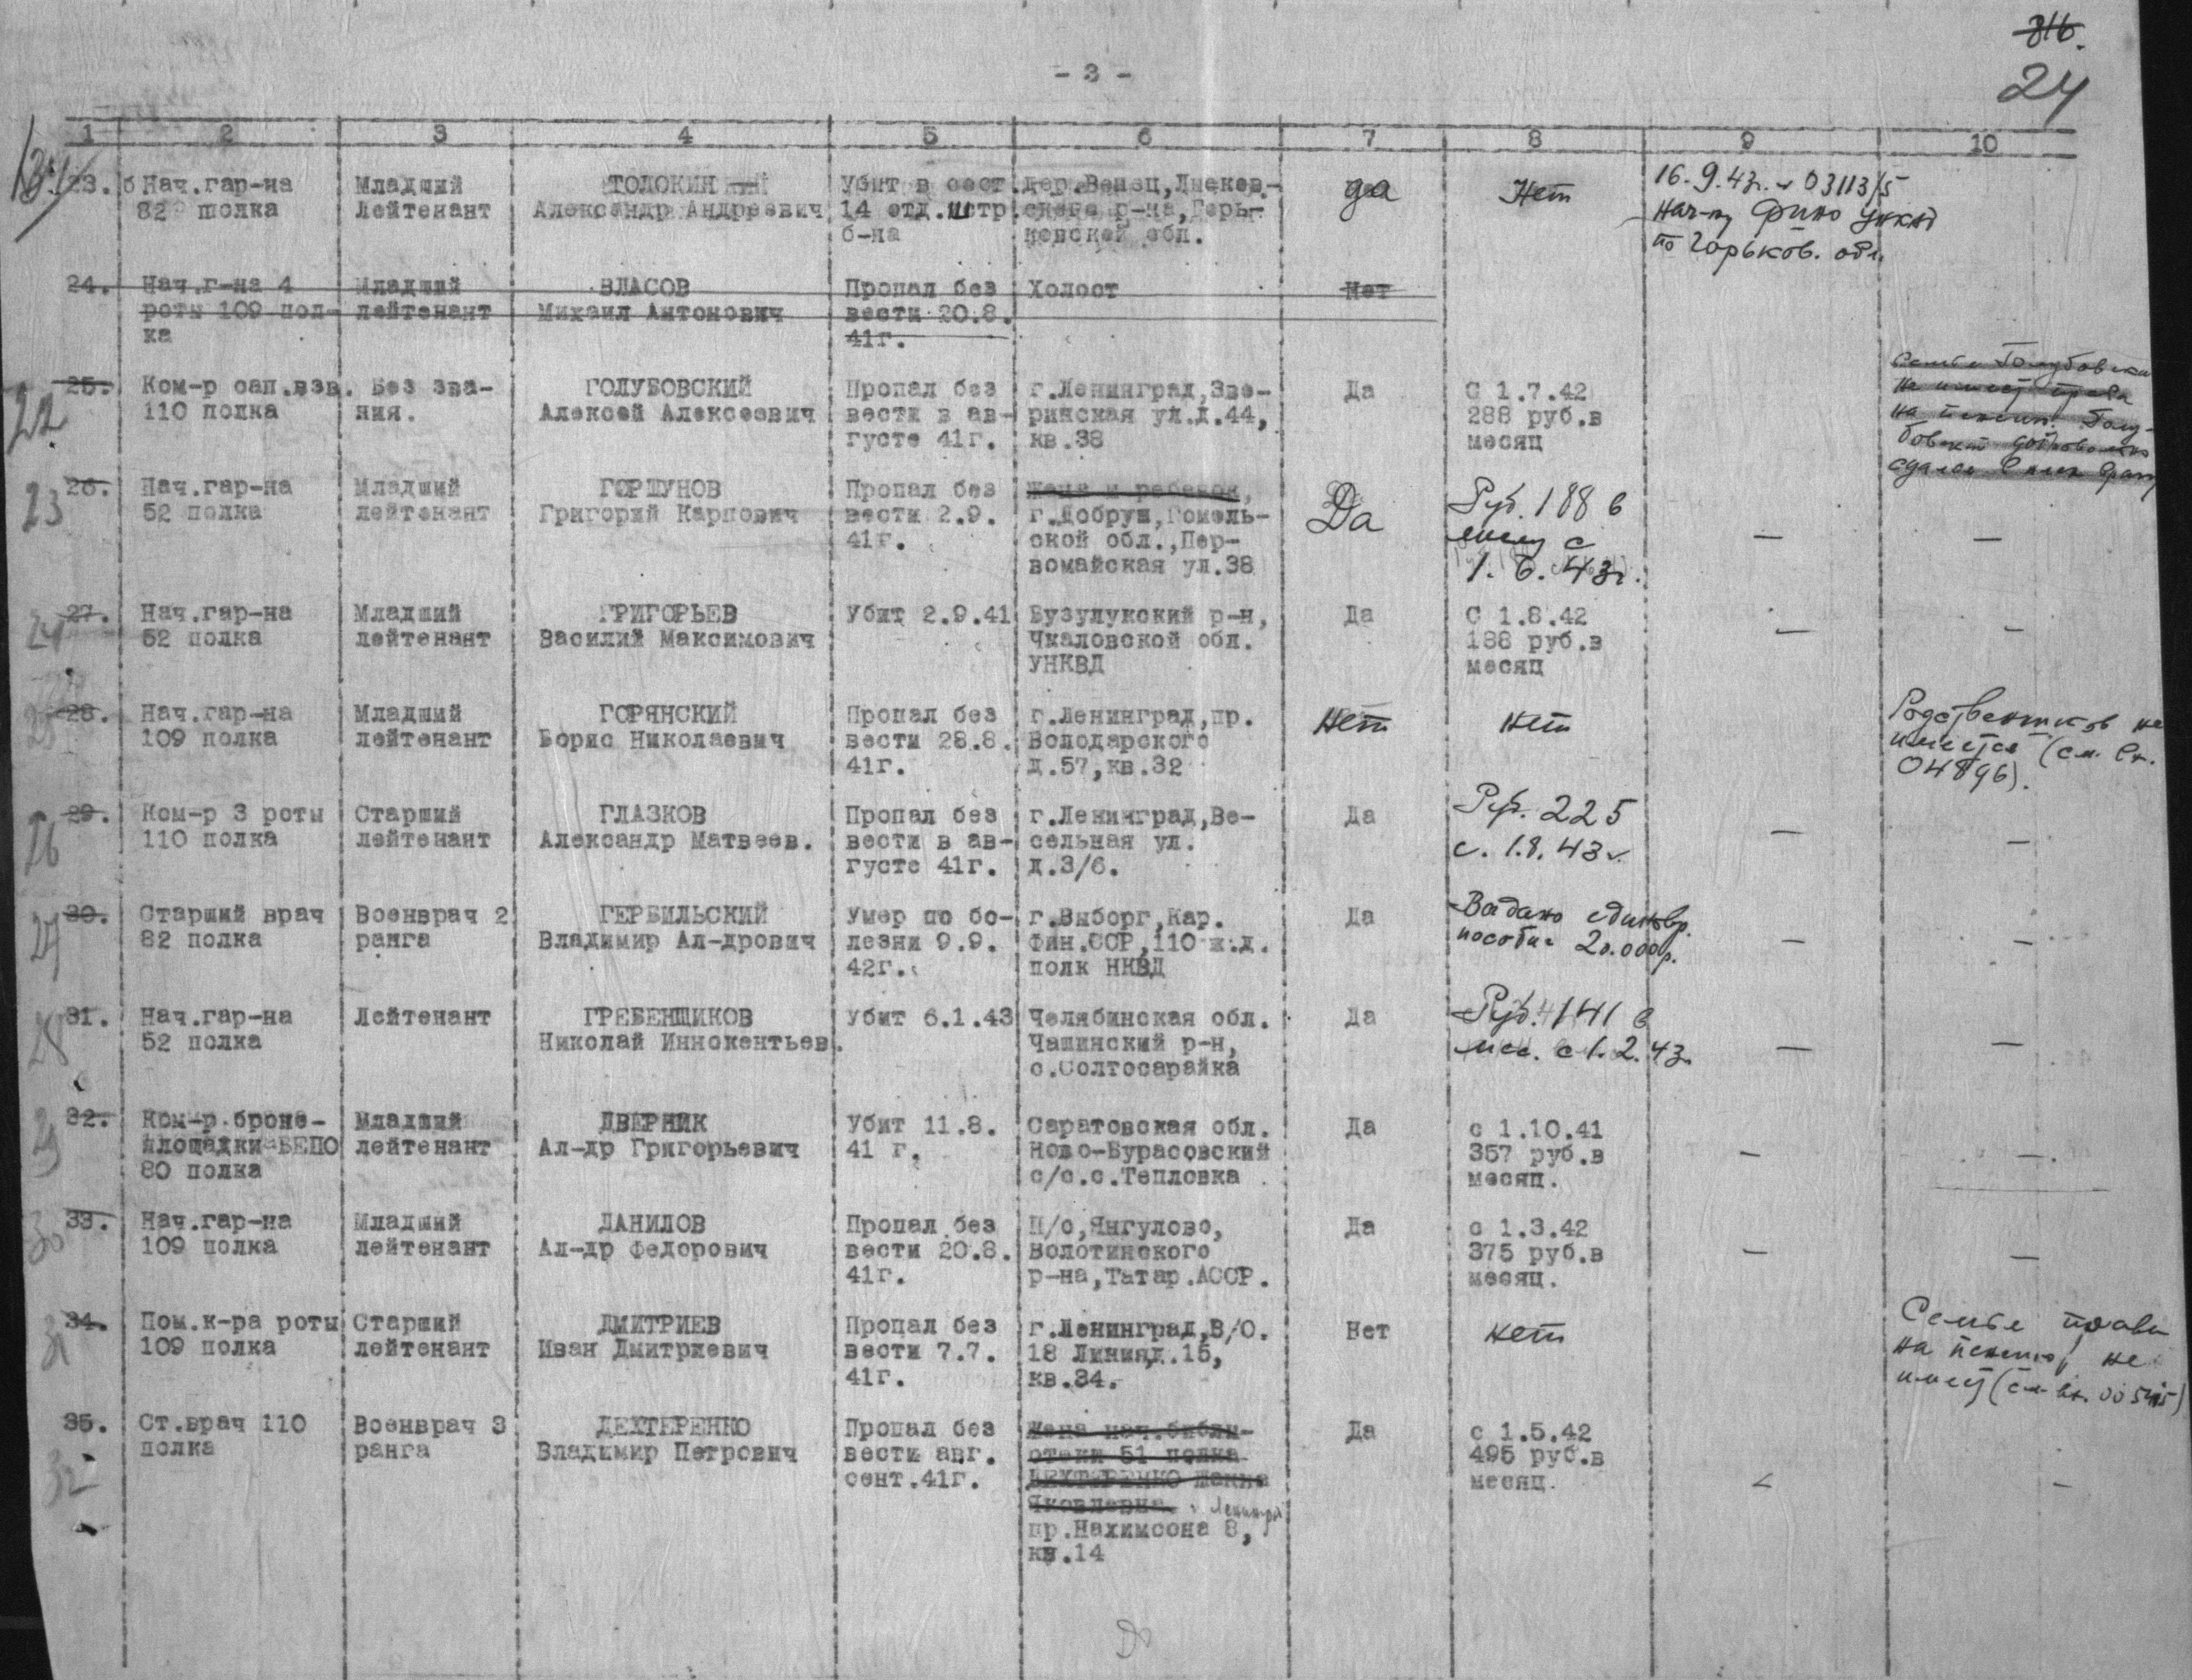 316.
24
- 3 -
1 2 3 4 5 6 7 8 9 10
23. Нач.гар-на Младший ТОЛОКИН Убит в сост. дер.Венец, да Нет 16.9.43г. 03113/5
82 полка Лейтенант Александр Андреевич 14 отд.шстр. р-на,Горь- Нач-ку ФИНО УНКВД
б-на ковской обл. по Горьков. обл.
24. Нач.г-на 4 Младший ВЛАСОВ Пропал без Холост Нет
роты 109 пол- лейтенант Михаил Антонович вести 20.8.
ка 41г.
22
25. Ком-р сап.взв. Без зва- ГОЛУБОВСКИЙ Пропал без г.Ленинград,Зве- Да С 1.7.42
110 полка ния. Алексей Алексеевич вести в ав- ринская ул.д.44, 288 руб.в
густе 41г. кв.38 месяц
Семья Голубовски
не имеет права
на пенсию. Голу-
бовский добровольно
сдался в плен врагу
23
26. Нач.гар-на Младший ГОРШУНОВ Пропал без Жена и ребенок, Да Руб. 188 в
52 полка лейтенант Григорий Карпович вести 2.9. г.Добруш,Гомель- месяц с — —
41г. ской обл.,Пер- 1.6.43г.
вомайская ул.38
24
27. Нач.гар-на Младший ГРИГОРЬЕВ Убит 2.9.41 Бузулукский р-н, Да С 1.8.42 — —
52 полка лейтенант Василий Максимович Чкаловской обл. 188 руб.в
УНКВД месяц
25
28. Нач.гар-на Младший ГОРЯНСКИЙ Пропал без г.Ленинград,пр. Нет Нет Родственников не
109 полка лейтенант Борис Николаевич вести 28.8. Володарского имеется (см. вх.
41г. д.57,кв.32 04896).
26
29. Ком-р 3 роты Старший ГЛАЗКОВ Пропал без г.Ленинград,Ве- Да Руб. 225 — —
110 полка лейтенант Александр Матвеев. вести в ав- сельная ул. с. 1.8.43г.
густе 41г. д.3/6.
27
30. Старший врач Военврач 2 ГЕРБИЛЬСКИЙ Умер по бо- г.Выборг,Кар. Да Выдано единовр.
82 полка ранга Владимир Ал-дрович лезни 9.9. фин.ССР,110 ж.д. пособие 20.000р. — —
42г. полк НКВД
28
31. Нач.гар-на Лейтенант ГРЕБЕНЩИКОВ Убит 6.1.43 Челябинская обл. Да Руб. 141 в
52 полка Николай Иннокентьев. Чашинский р-н, мес. с 1.2.43. — —
с.Солтосарайка
29
32. Ком-р броне- Младший ДВЕРНИК Убит 11.8. Саратовская обл. Да с 1.10.41
площадки БЕПО лейтенант Ал-др Григорьевич 41 г. Ново-Бурасовский 357 руб.в — —.
80 полка с/с.с.Тепловка месяц.
30
33. Нач.гар-на Младший ДАНИЛОВ Пропал без П/о,Янгулово, Да с 1.3.42
109 полка лейтенант Ал-др Федорович вести 20.8. Волотинского 375 руб.в — —
41г. р-на,Татар.АССР. месяц.
31
34. Пом.к-ра роты Старший ДМИТРИЕВ Пропал без г.Ленинград,В/О. Нет Нет Семья права
109 полка лейтенант Иван Дмитриевич вести 7.7. 18 Линияд.15, на пенсию не
41г. кв.34. имеет (см вх.
35. Ст.врач 110 Военврач 3 ДЕХТЕРЕНКО Пропал без Жена нач.библи- Да с 1.5.42
полка ранга Владимир Петрович вести авг. отеки 51 полка 495 руб.в
32 сент.41г. ДЕХТЕРЕНКО месяц. — —
Яковлевна Ленинград
пр.Нахимсона 8,
кв.14